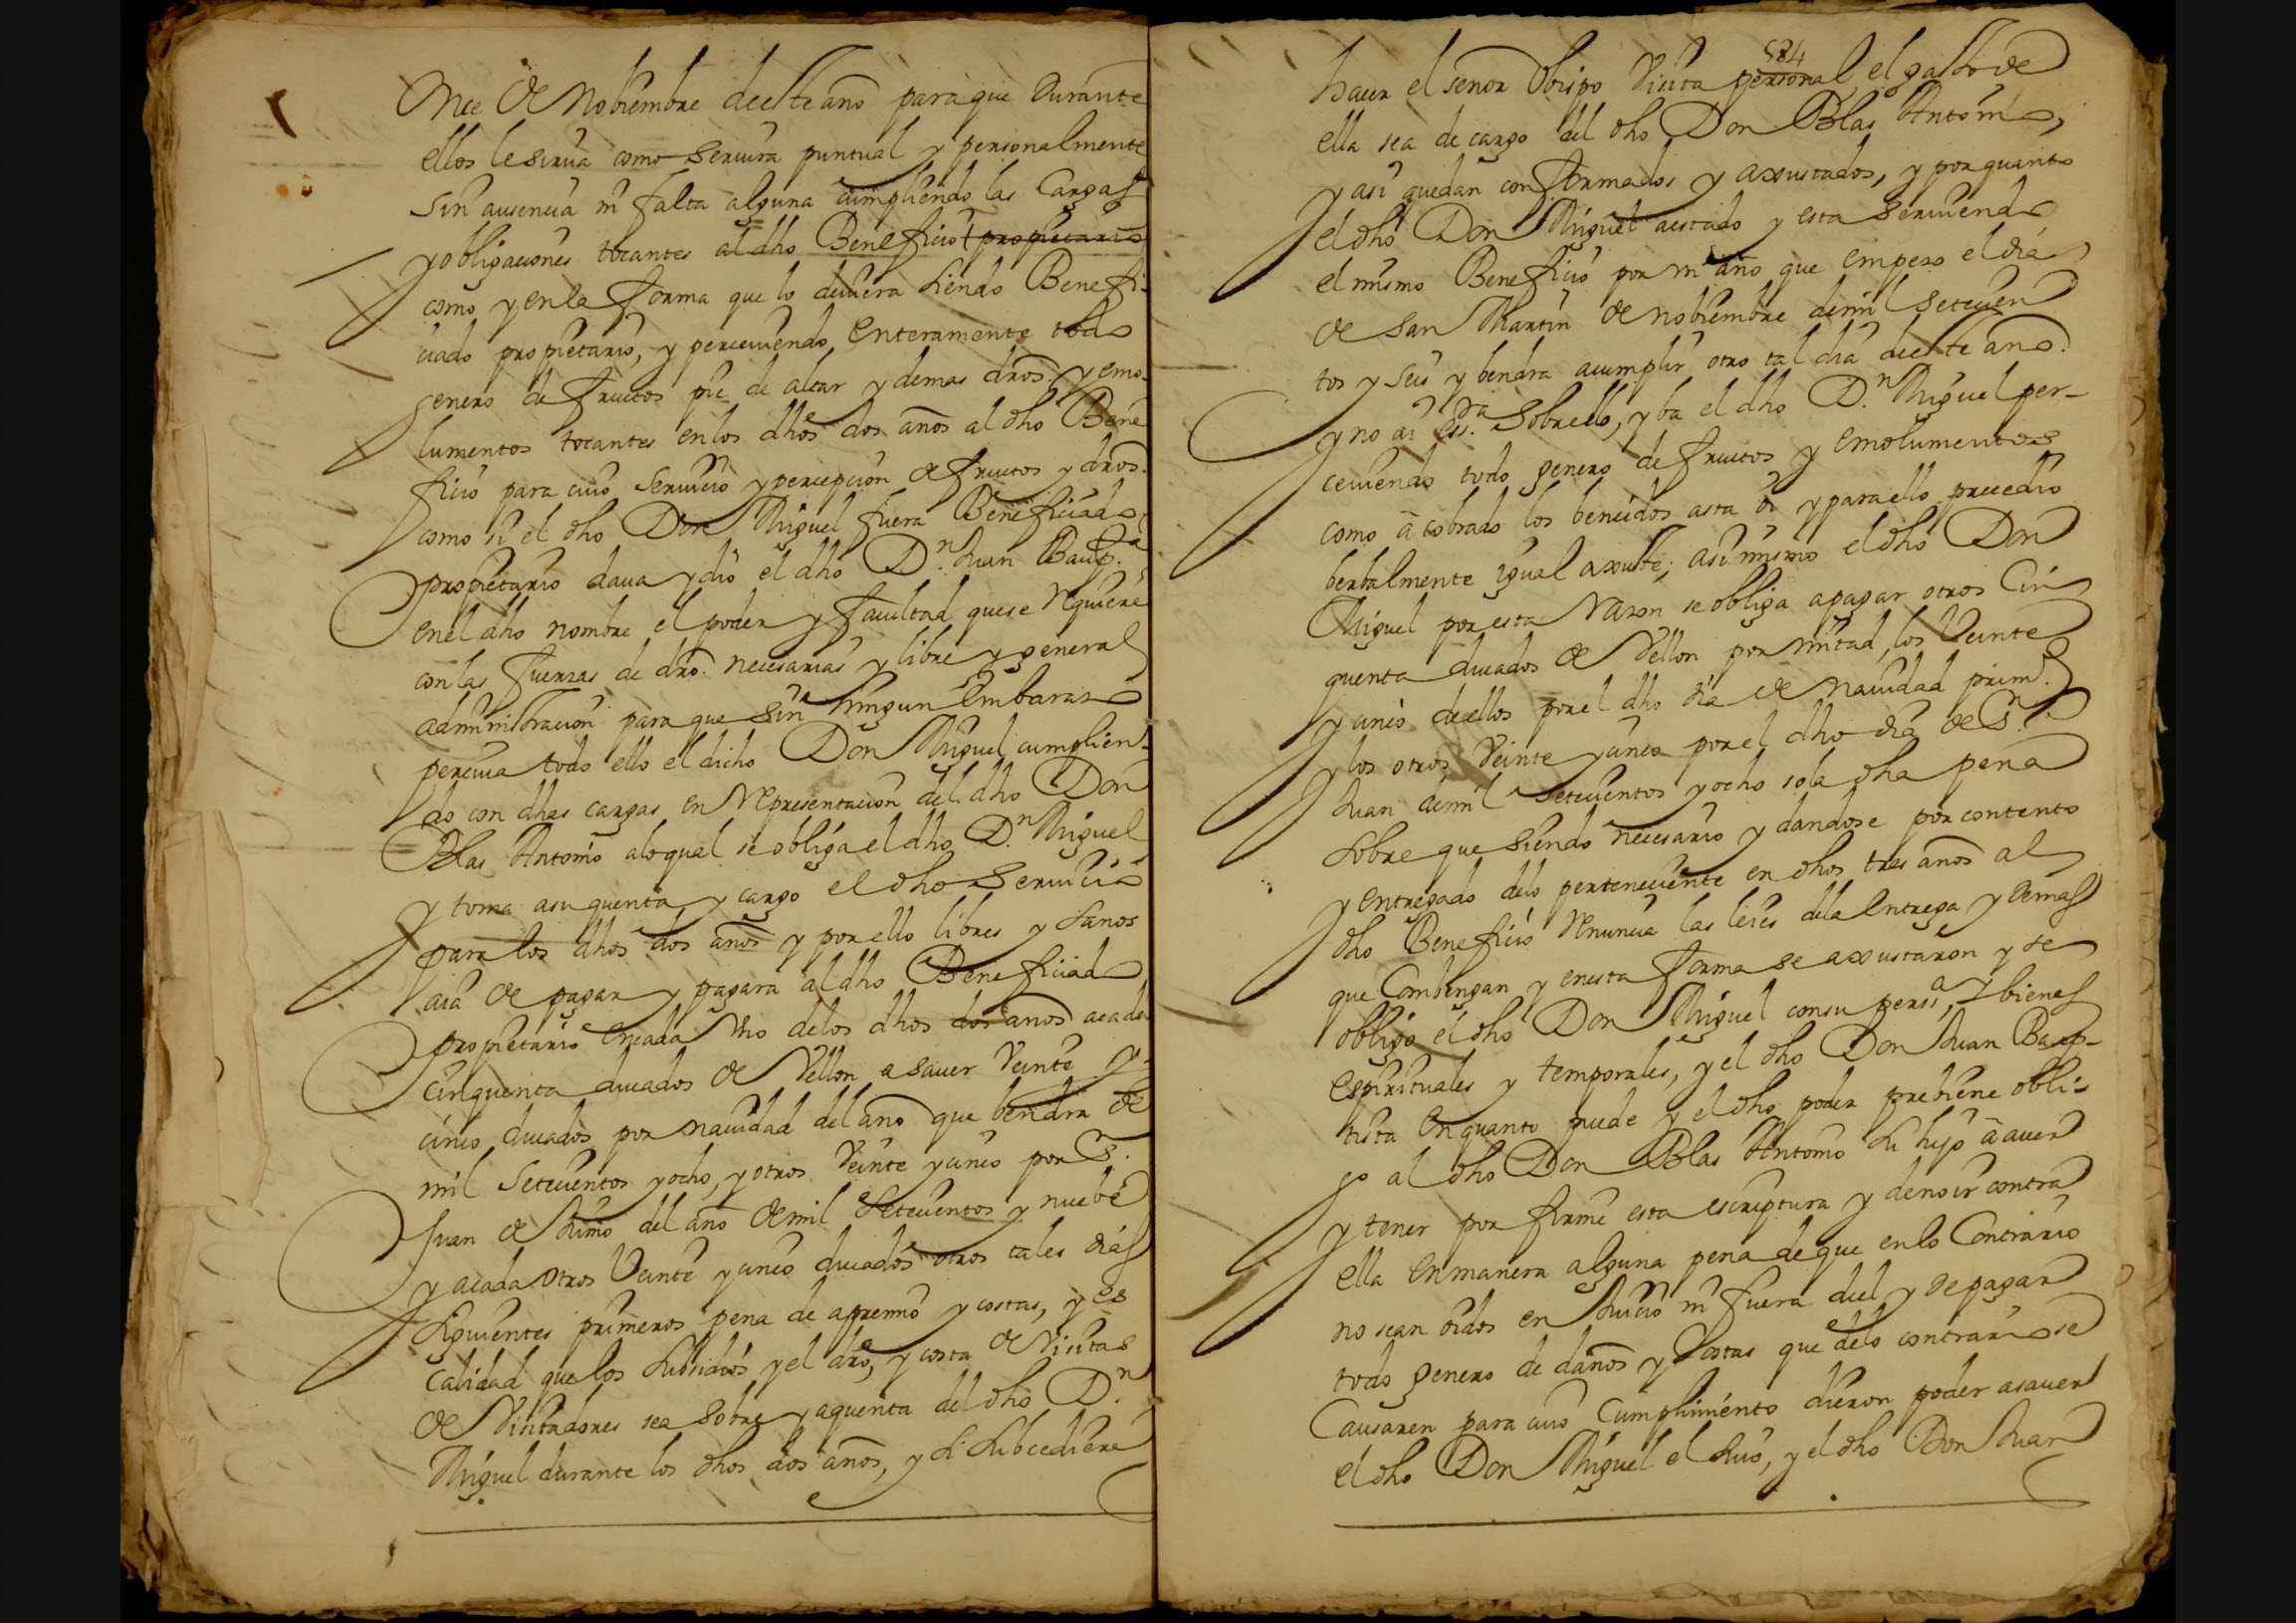 Once de Nobiembre deeste año para que durante
ellos le sirua como seruira puntual y personalmente
sin ausencia ni falta alguna cumpliendo las Cargas
y obligaciones tocantes al dho Beneficio propietario
como y en la forma que lo deuiera siendo Benefi-
ciado propietario, y perceuiendo enteramente todo
genero de fructos pie de altar y demas dros. y emo-
lumentos tocantes en los dhos dos años al dho Bene
ficio para cuio seruicio y percepcion de fructos y dros.
como si el dho Don Miguel fuera Beneficiado
propietario daua y dio el dho D.n Juan Baup.ta
en el dho nombre el poder y facultad que se requiere
con las fuerzas de dro. necesarias y libre y general
administracion para que sin ningun embarazo
perciua todo ello el dicho Don Miguel cumplien-
do con dhas cargas en representacion del dho Don
Blas Antonio alo qual se obliga el dho D.n Miguel
y toma a su quenta y cargo el dho seruicio
para los dhos dos años y por ello libres y sanos
aia de pagar y pagara al dho Beneficiado
propietario en cada vno delos dhos dos años acada
cinquenta ducados de Vellon a sauer Veinte y
cinco ducados por nauidad del año que bendra de
mil setecientos y ocho, y otros Veinte y cinco por S.n
Juan de Junio del año de mil setecientos y nuebe
y acada otros Veinte y cinco ducados otros tales dias
siguientes primeros pena de apremio y costas, y es
Calidad que los subsidios y el dro, y costa de Visitas
de Visitadores sea sobre y aquenta del dho D.n
Miguel durante los dhos dos años, y si subcediere
584
hacer el señor Obispo Visita personal el gasto de
ella sea de cargo del dho Don Blas Antonio,
y asi quedan conformados y axustados, y por quanto
el dho Don Miguel aestado y esta seruiendo
el mismo Beneficio por un año que empezo el dia
de San Martin de nobiembre de mil setecien
tos y seis y bendra acumplir otro tal dia deeste año.
y no ai ess.ra sobre ello, y ba el dho D.n Miguel per-
ceuiendo todo genero de fructos y emolumentos
como a cobrado los bencidos asta oi y para ello precedio
berbalmente igual axuste; asi mismo el dho Don
Miguel por esta razon se obliga apagar otros Cin
quenta ducados de Vellon por mitad, los Veinte
y cinco de ellos por el dho dia de nauidad prim.o
y los otros Veinte y cinco por el dho dia de S.n
Juan de mil setecientos y ocho sola dha pena
sobre que siendo necesario y dandose por contento
y entregado delo perteneciente en dhos tres años al
dho Beneficio renuncia las leies dela entrega y demas
que Combengan y en esta forma se axustaron y se
obligo el dho Don Miguel con su pers.a, y bienes
espirituales y temporales, y el dho Don Juan Baup-
tista en quanto puede y el dho poder prebiene obli-
go al dho Don Blas Antonio su hijo a auer
y tener por firme esta escriptura y de no ir contra
ella en manera alguna pena de que en lo Contrario
no sean oidos en Juicio ni fuera del y de pagar
todo genero de daños y Costas que delo contrario se
Causaren para cuio Cumplimiento dieron poder asauer
el dho Don Miguel el suio, y el dho Don Juan